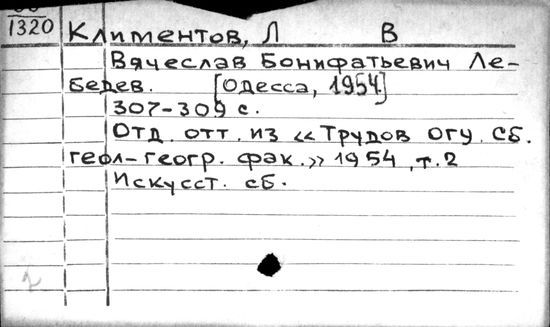 1320
Климентов, Л В
Вячеслав Бонифатьевич Ле-
бедев. [Одесса, 1954]
307-309 с.
Отд. отт. из «Трудов ОГУ. Сб.
геол-геогр. фак.» 1954, т. 2
Искусст. сб.